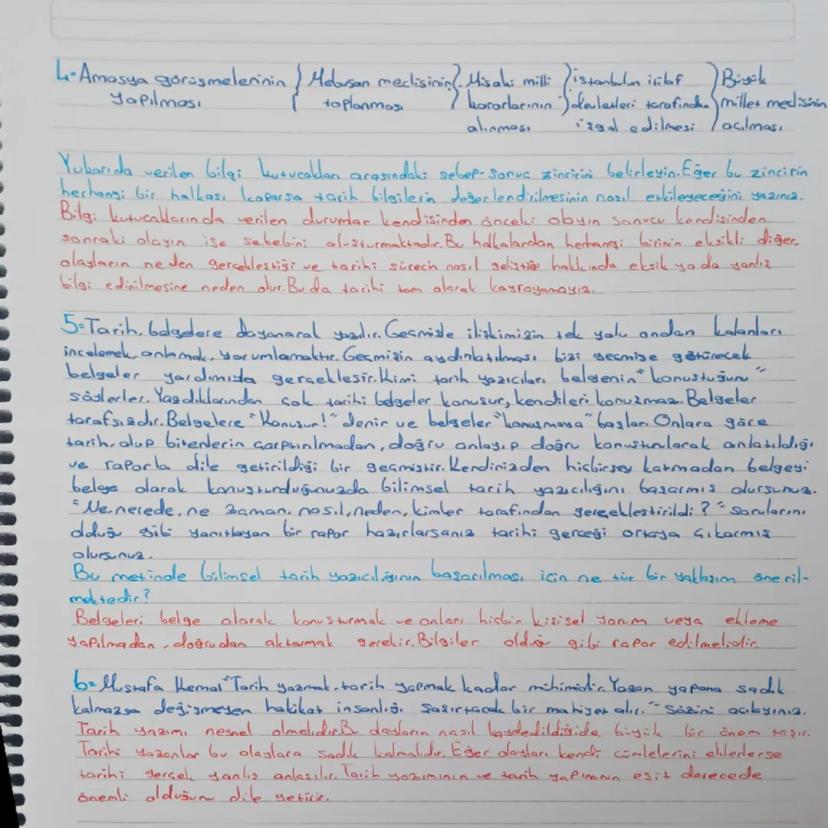 4-Amasya görüşmelerinin } Mebusan meclisinin } Misakı milli } istanbulun itilaf } Büyük
yapılması { toplanması kararlarının devletleri tarafından millet meclisinin
alınması işgal edilmesi açılması
Yukarıda verilen bilgi kutucukları arasındaki sebep-sonuç zincirini belirleyin. Eğer bu zincirin
herhangi bir halkası koparsa tarih bilgilerin değerlendirilmesinin nasıl etkileyeceğini yazınız.
Bilgi kutucuklarında verilen durumlar kendisinden önceki olayın sonucu kendisinden
sonraki olayın ise sebebini oluşturmaktadır. Bu halkalardan herhangi birinin eksikli diğer
olayların neden gerçekleştiği ve tarihi sürecin nasıl geliştiği hakkında eksik ya da yanlış
bilgi edinilmesine neden olur. Bu da tarihi tam olarak kavrayamayız.
5-Tarih, belgelere dayanarak yazılır. Geçmişle ilişkimizin tek yolu ondan kalanları
incelemek, anlamak, yorumlamaktır. Geçmişin aydınlatılması bizi geçmişe götürecek
belgeler yardımıyla gerçekleşir. Kimi tarih yazıcıları belgenin "konuştuğunu"
söylerler. Yazdıklarından çok tarihi belgeler konuşur, kendileri konuşmaz. Belgeler
tarafsızdır. Belgelere "Konuşur!" denir ve belgeler "konuşmaya" başlar. Onlara göre
tarih, olup bitenlerin çarpıtılmadan, doğru anlayıp doğru konuşturularak anlatıldığı
ve raporla dile getirildiği bir geçmiştir. Kendinizden hiçbirşey katmadan belgeyi
belge olarak konuşturduğunuzda bilimsel tarih yazıcılığını başarmış olursunuz.
"Ne, nerede, ne zaman, nasıl, neden, kimler tarafından gerçekleştirildi?" sorularını
olduğu gibi yanıtlayan bir rapor hazırlarsanız tarihi gerçeği ortaya çıkarmış
olursunuz.
Bu metinde bilimsel tarih yazıcılığının başarılması için ne tür bir yaklaşım öneril-
mektedir?
Belgeleri belge olarak konuşturmak ve onları hiçbir kişisel yorum veya ekleme
yapılmadan, doğrudan aktarmak gerekir. Bilgiler olduğu gibi rapor edilmelidir.
6-Mustafa Kemal "Tarih yazmak, tarih yapmak kadar mühimdir. Yazan yapana sadık
kalmazsa değişmeyen hakikat insanlığı şaşırtacak bir mahiyet alır." Sözünü açıklayınız.
Tarih yazımı nesnel olmalıdır. Bu olayların nasıl kaydedildiğide büyük bir önem taşır.
Tarihi yazanlar bu olaylara sadık kalmalıdır. Eğer olayları kendi cümlelerini eklerlerse
tarihi gerçek yanlış anlaşılır. Tarih yazımının ve tarih yapımının eşit derecede
önemli olduğunu dile getirir.